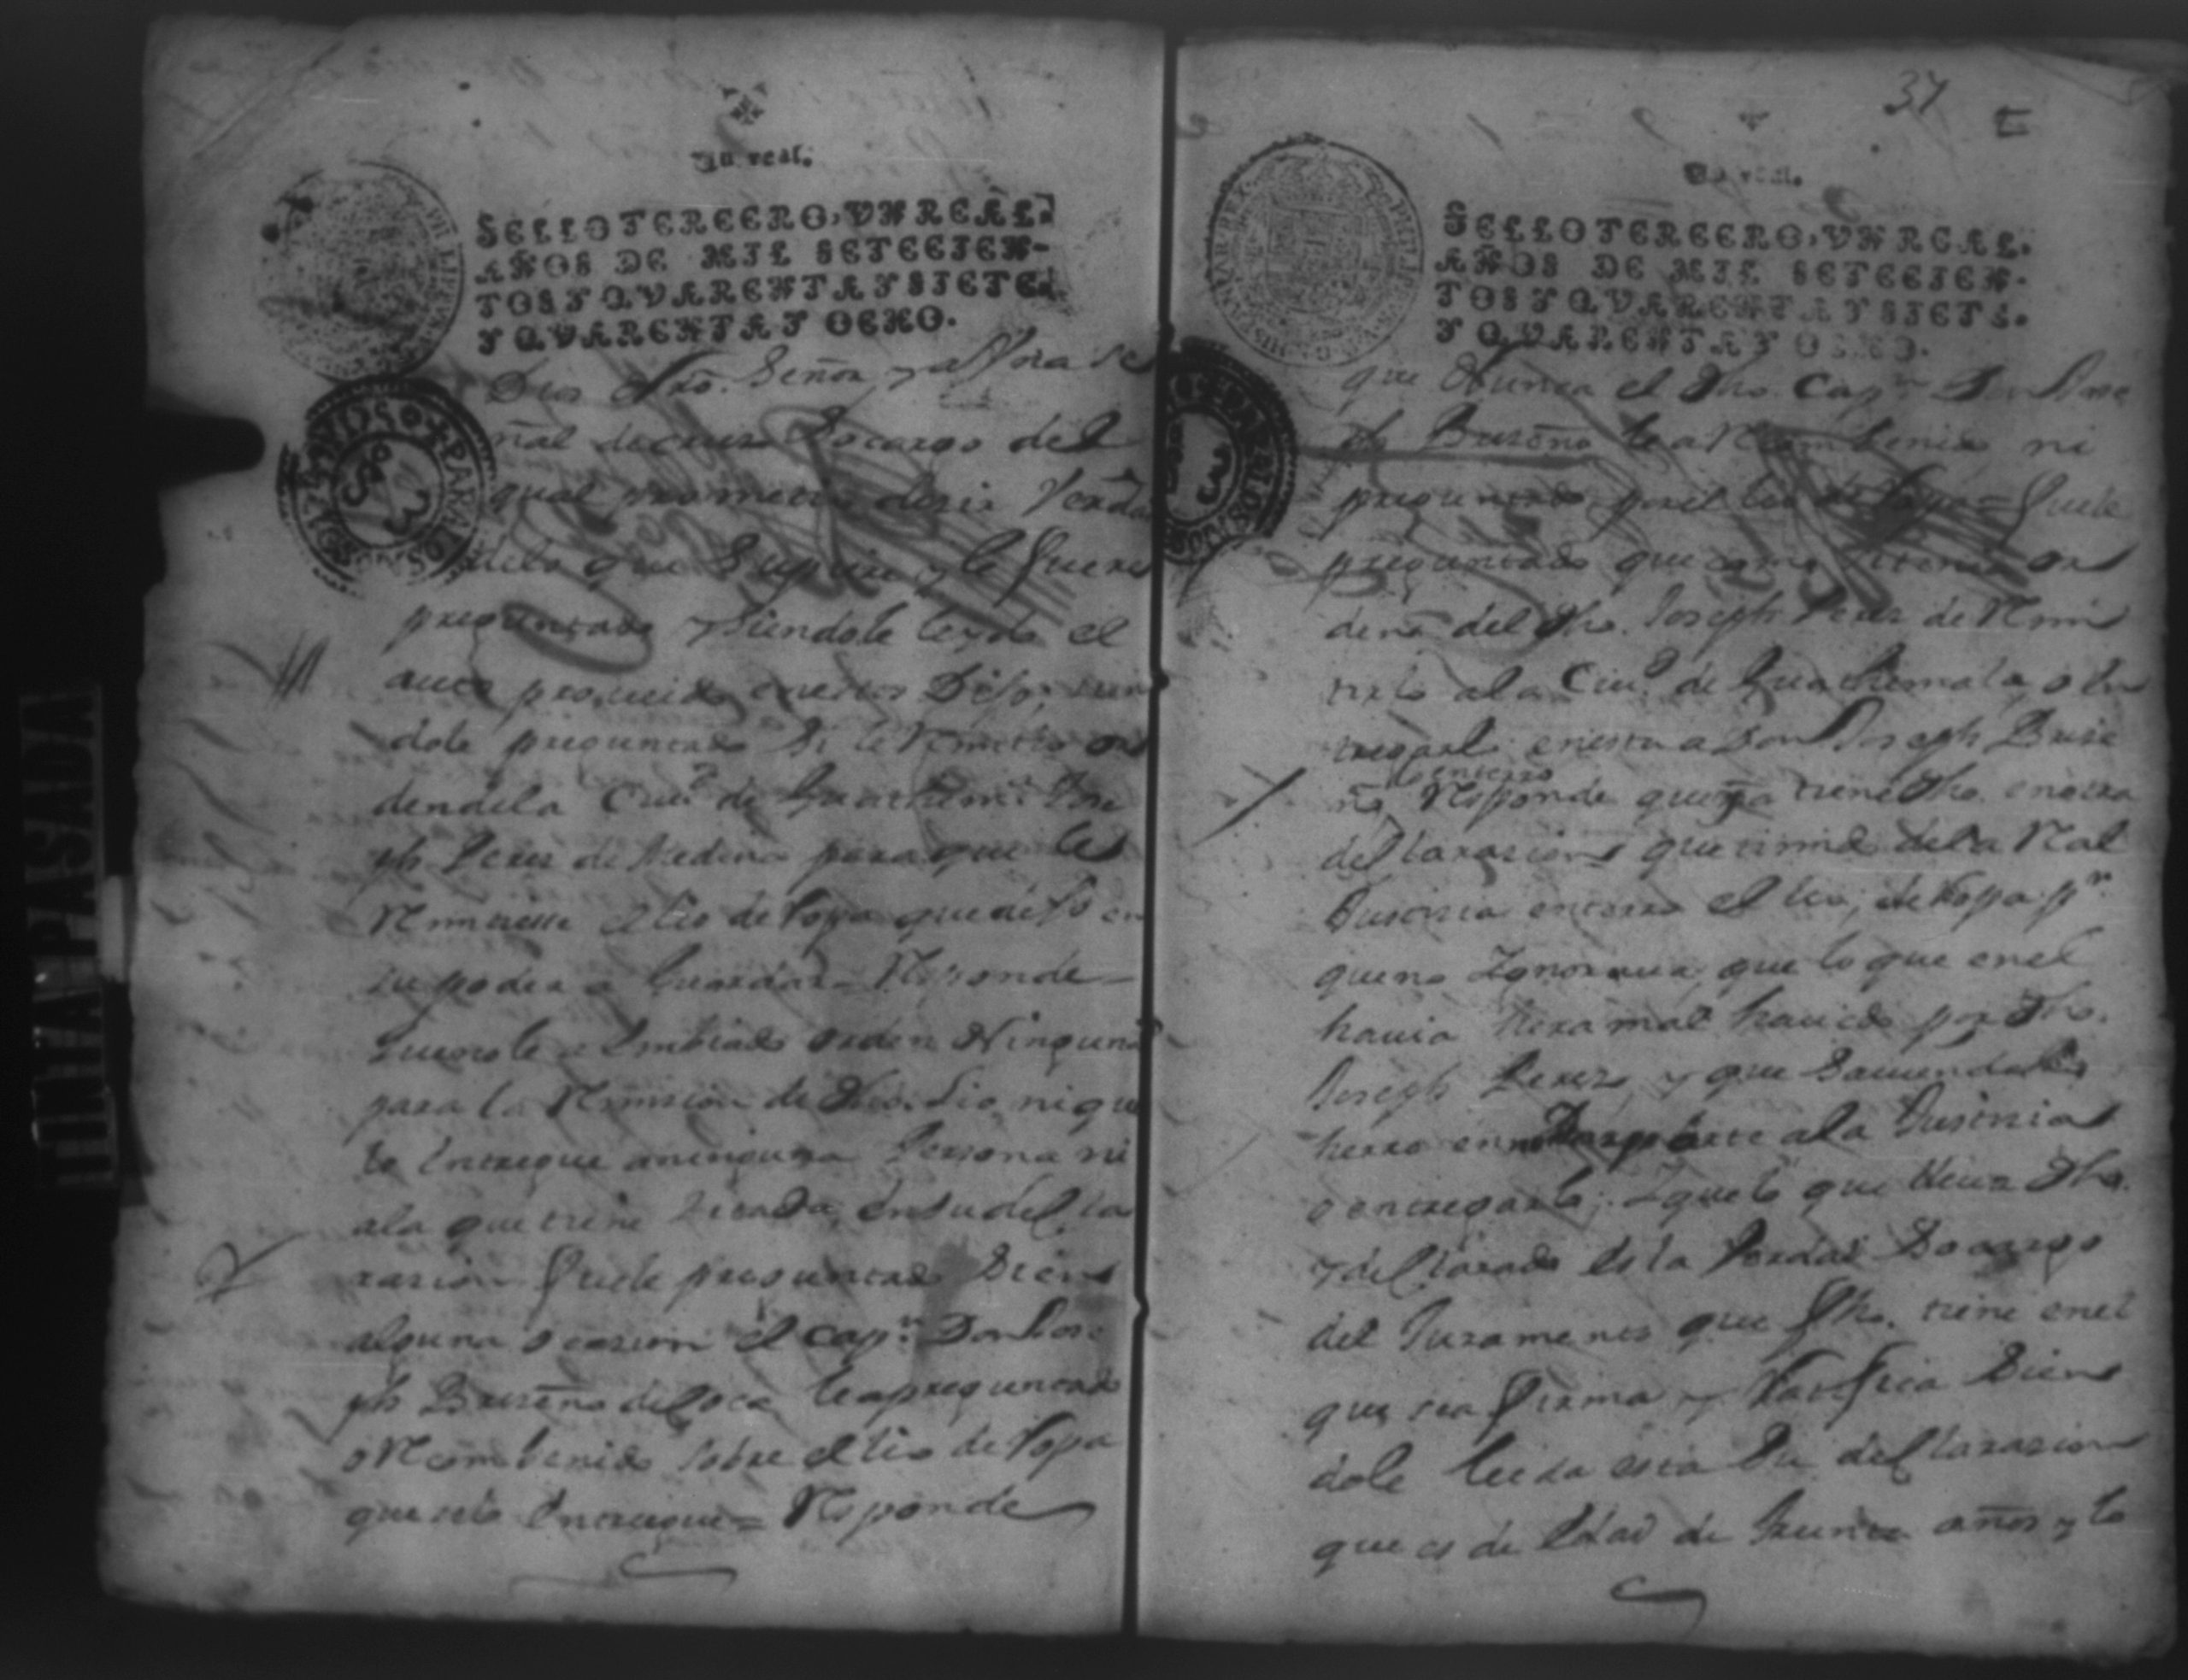 Un real.
SELLO TERCERO, VN REAL,
AÑOS DE MIL SETECIEN-
TOS Y QVARENTA Y SIETE,
Y QVARENTA Y OCHO.
Dios Nro. Señor, y a Vna se
ñal de cruz So cargo del
qual prometio desir Verda
delo que Supiere y le fuere
preguntado y siendole leydo el
auto proueido
dole preguntado Si le Rmitio or
den dela Ciud de Guathema Jose
ph Perez de Medina para que le
Rmitiesse el lio de Ropa que dejo en
su poder a Guardar = Rsponde =
que no le a Embiado orden Ninguna
para la Rmision de dho. Lio, ni que
lo Entregue a ninguna Persona ni
a la que tiene Sitada, en su decla
rasion fuele preguntado Si en
alguna ocasion el capn. Don Jose
ph Briseño de Coca le a preguntado
o Rcombenido sobre el lio de Ropa
que se lo Entregue = Rsponde
37
Un real.
SELLO TERCERO, VN REAL,
AÑOS DE MIL SETECIEN-
TOS Y QVARENTA Y SIETE,
Y QVARENTA Y OCHO.
que Nunca el dho. Capn. Don Jose
ph Briseño le a Rcombenido ni
preguntado por el lio de Ropa = fuele
preguntado que como or
den del dho. Joseph Perez de Rmi
tirlo a la Ciud. de Guathemala, o en
tregarlo en esta a Don Joseph Brise
ño, Rsponde que tiene dho. en otra
declarasion que temio dela Real
Justicia enterro el lio, de Ropa pr.
que no Ignoraua, que lo que en el
hauia hera mal hauido por dho.
Joseph Perez, y que
herro en no a la Justicia
o entregarlo; Y que lo que lleua dho.
y declarado es la Verdad So cargo
del Juramento que fho. tiene en el
que se a firma y Ratifica Sien
dole leida esta Su declarasion
que es de Edad de años y lo